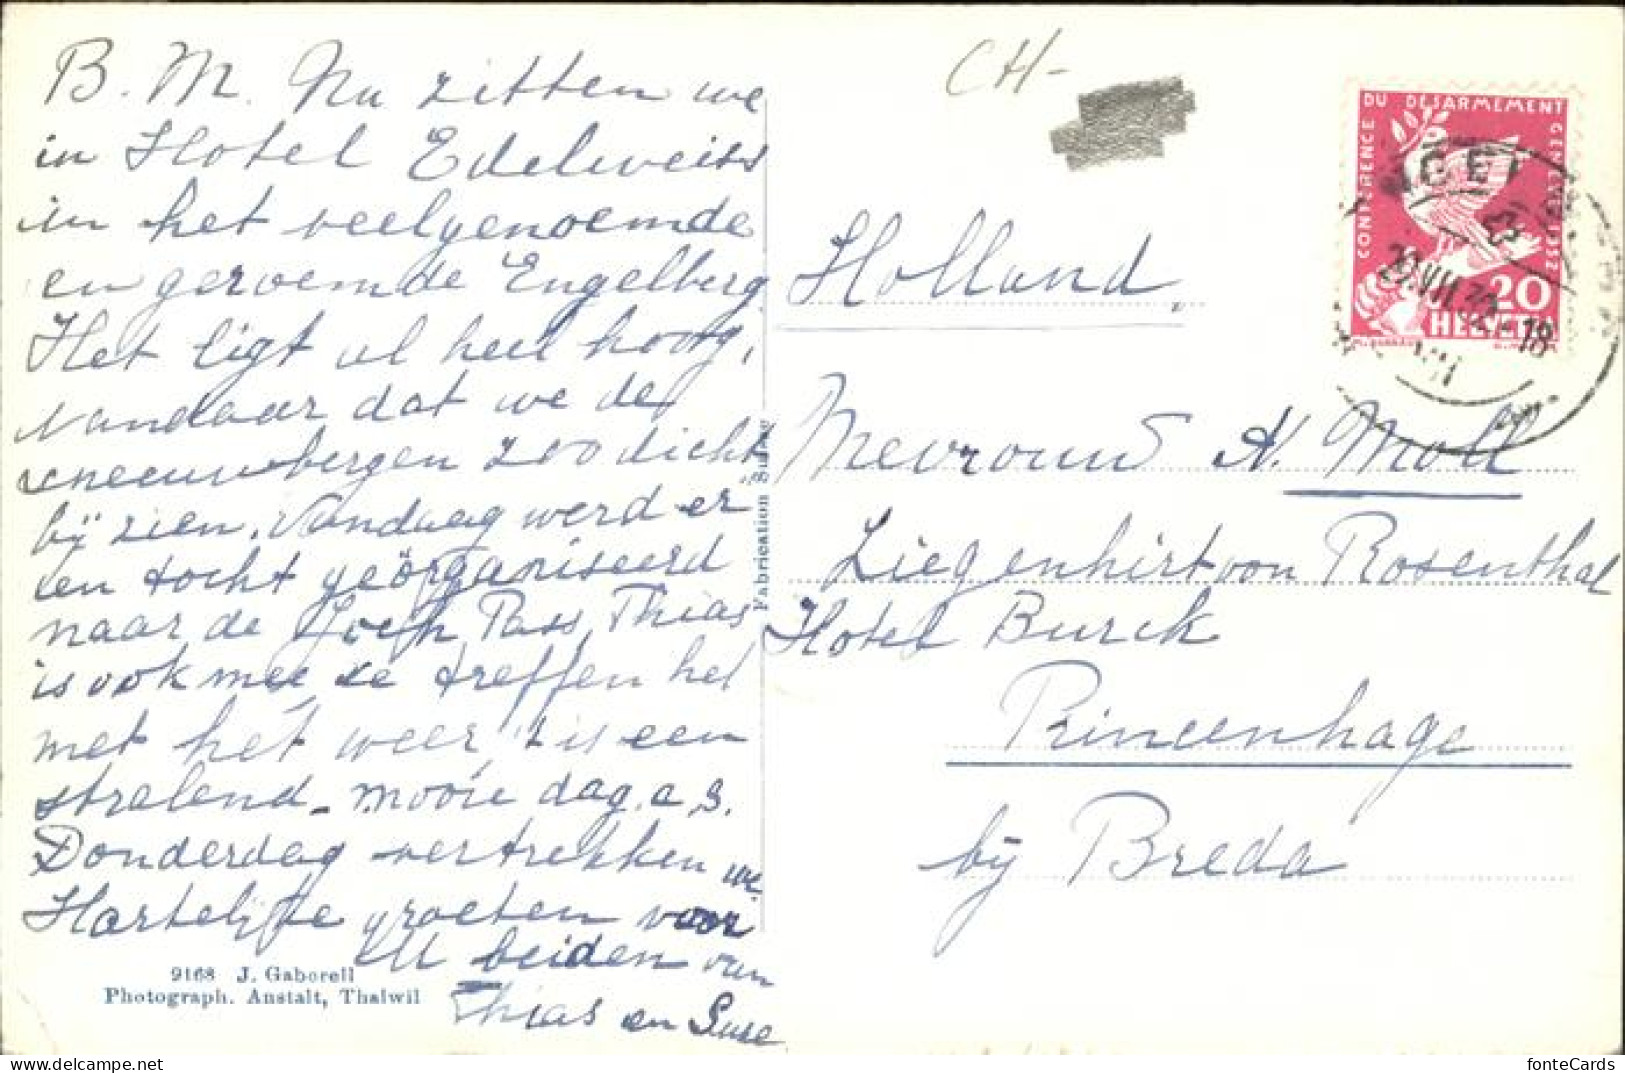 B. M. Nu zitten we
in Hotel Edelweiss
in het veelgenoemde
en geroemde Engelberg
Het ligt al heel hoog,
Vandaar dat we de
sneeuwbergen zoo dicht
bij zien. Vandaag werd er
een tocht geörganiseerd
naar de Joch Pass Thias
is ook mee ze treffen het
met het weer 't is een
stralend mooie dag. a.s.
Donderdag vertrekken we
Hartelijke groeten voor
U beiden van
Thias en Suse
9168 J. Gaberell
Photograph. Anstalt, Thalwil
Fabrication Suisse
CH-
CONFÉRENCE DU DÉSARMEMENT GENÈVE 1932
20
HELVETIA
22.VII.32-18
Holland
Mevrouw A. Moll
Liegenhirt von Rosenthal
Hotel Burck
Princenhage
bij Breda
www.delcampe.net
fonteCards